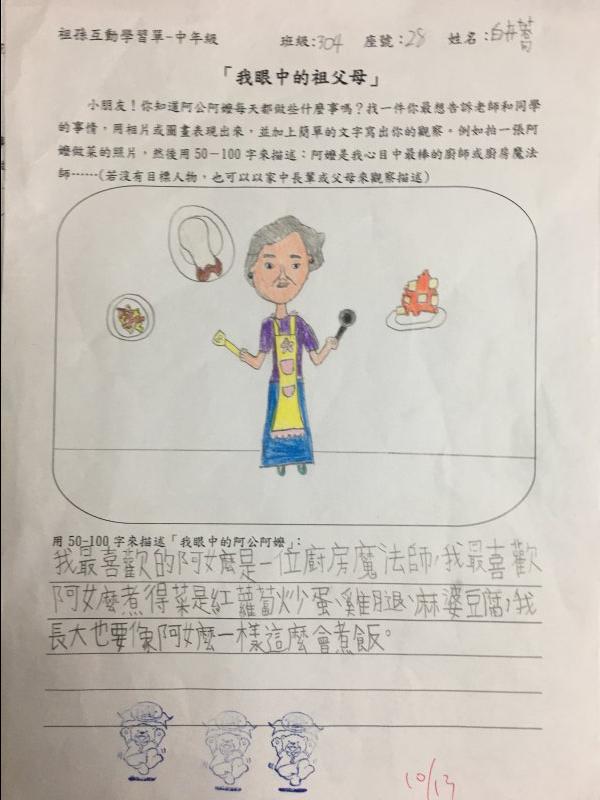 祖孫互動學習單-中年級 班級:304 座號:28 姓名:
「我眼中的祖父母」
小朋友！你知道阿公阿嬤每天都做些什麼事嗎？找一件你最想告訴老師和同學
的事情，用相片或圖畫表現出來，並加上簡單的文字寫出你的觀察。例如拍一張阿
嬤做菜的照片，然後用50-100字來描述：阿嬤是我心目中最棒的廚師或廚房魔法
師……(若沒有目標人物，也可以以家中長輩或父母來觀察描述)
用 50-100 字來描述「我眼中的阿公阿嬤」：
我最喜歡的阿嬤是一位廚房魔法師，我最喜歡
阿嬤煮得菜是紅蘿蔔炒蛋、雞腿、麻婆豆腐，我
長大也要像阿嬤一樣這麼會煮飯。
10/13